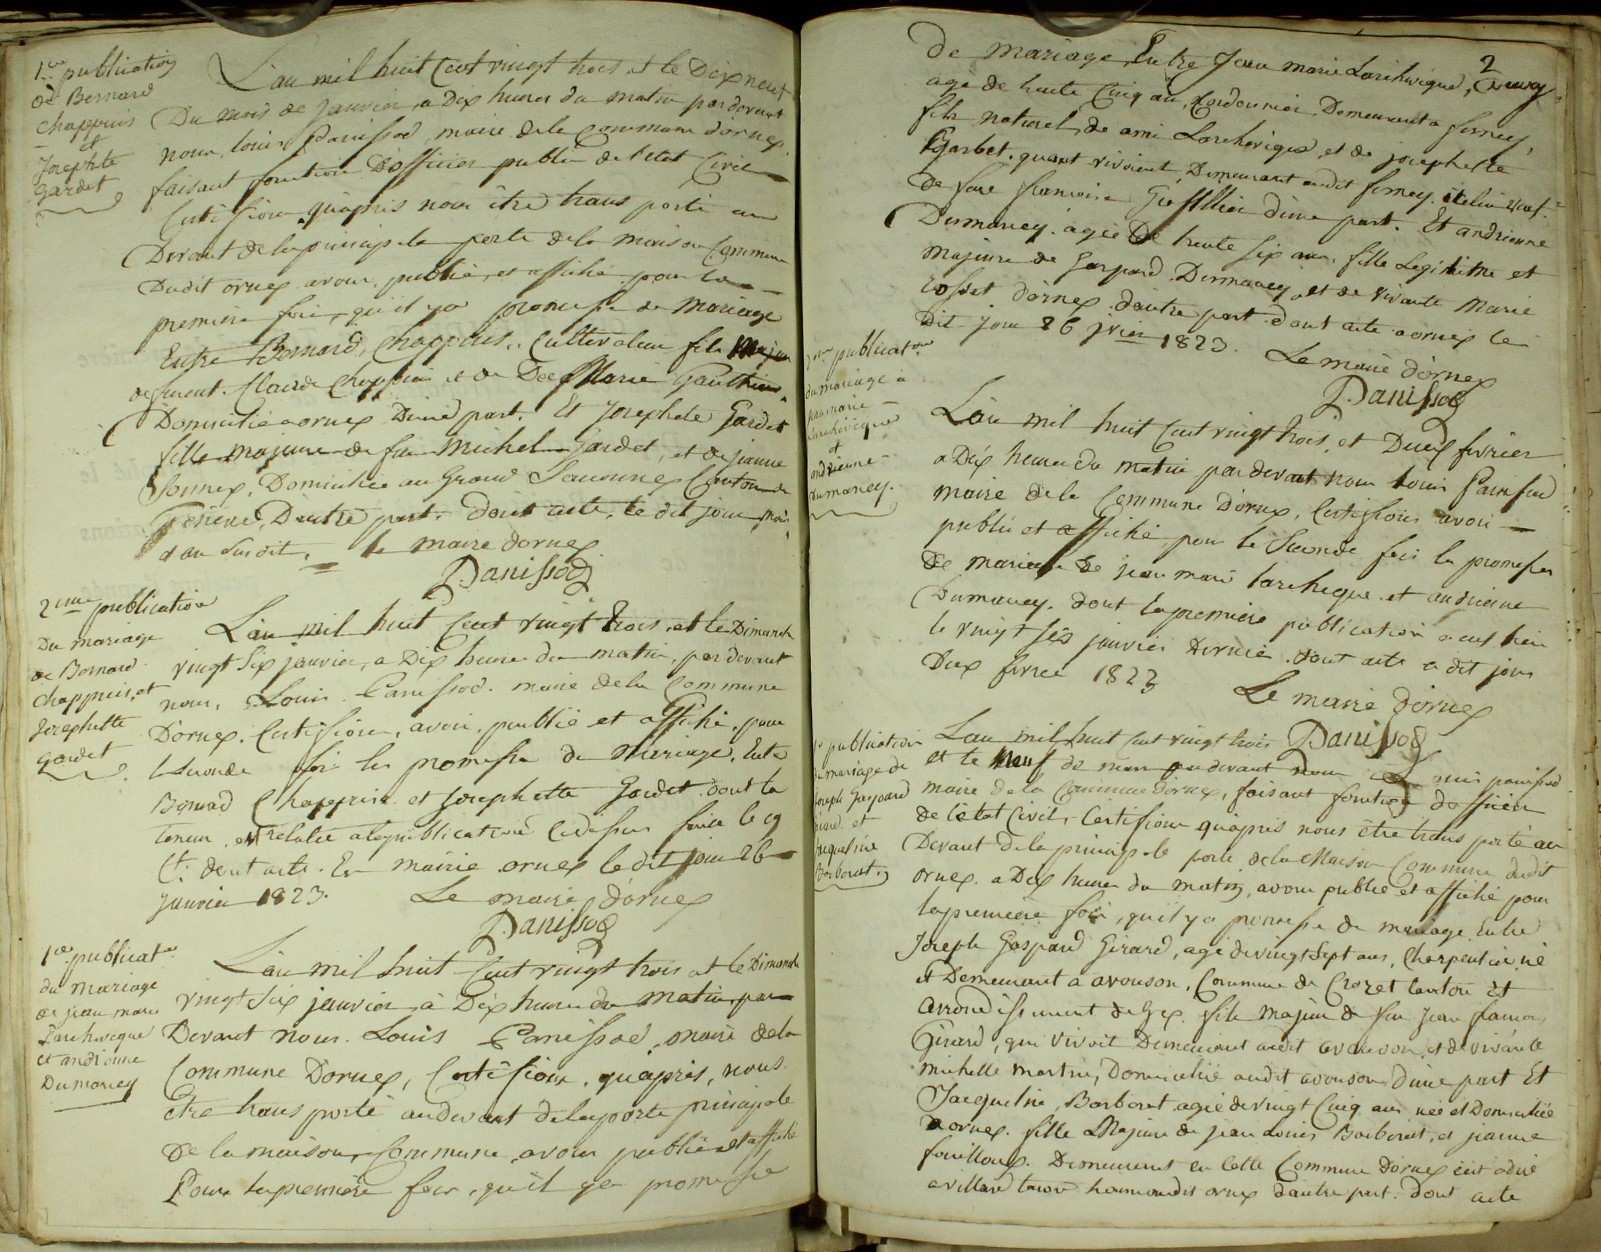 1ere publication
de Bernard
Chappuis
et
Josephte
Gardet
L'an mil huit Cent vingt trois et le Dix neuf
Du mois de janvier, a Dix heures du matin par devant
nous, Louis Panissod, maire de la Commune d'ornex
faisant fonction d'officier public de l'etat Civil
Certifions qu'après nous être transporté au
Devant de la principale porte de la maison Commune
Dudit ornex avons publié, et affiché pour la
premiere fois, qu'il y a promesse de Mariage
Entre Bernard Chappuis, Cultivateur fils Majeur
Claude Chappuis et de Marie Gauthier
Domicilié a ornex D'une part. Et Josephte Gardet
fille majeure de feu Michel Gardet, et de jeanne
Domiciliée au Grand Saconnex Canton de
Genève, D'autre part. dont acte, le dit jour, mois
et an susdit. le maire d'ornex
Panissod
2eme publication
Du mariage
de Bernard
Chappuis, et
Josephte
Gardet
L'an mil huit Cent vingt trois, et le Dimanche
vingt Six janvier, a Dix heures du matin, par devant
nous, Louis Panissod, maire de la Commune
D'ornex, Certifions, avoir, publié et affiché, pour
la Seconde fois les promesse de Mariage, Entre
Bernard Chappuis et Josephte Gardet dont la
teneur, est relatée a la publication Cidessus faite le 19
Ct. dont acte. En mairie ornex le dit jour 26
Janvier 1823. Le maire d'ornex
Panissod
1ere publicat.on
du Mariage
de jean marie
Larcheveque
et andrienne
Dumarcey
L'an mil huit Cent vingt trois et le Dimanche
vingt Six janvier, à Dix heures du matin, par
Devant nous Louis Panissod, maire de la
Commune D'ornex, Certifions, qu'après, nous
être transporté au devant de la porte principale
De la maison Commune, avons publié et affiché
Pour la premiere fois, qu'il y a promesse
2
De Mariage Entre Jean marie Larcheveque,
agé de trente Cinq ans, Cordonnier, Demeurant a ferney,
fils naturel de ami Larcheveque, et de josephte
Garbet, quant vivoient, Demeurant audit ferney
de feue francoise D'une part. Et andrienne
Dumarcey, agée De trente Six ans, fille Legitime et
majeure de Gaspard Dumarcey, et de vivante Marie
Rosset d'ornex d'autre part dont acte a ornex le
Dit Jour 26 jvier 1823. Le maire d'ornex
Panissod
publicat.on
du mariage de
jean marie
Larcheveque
et
andrienne
Dumarcey.
L'an mil huit Cent vingt trois, et Deux fevrier
a Dix heures du matin par devant nous Louis Panissod
maire de la Commune D'ornex, Certifions avoir
publié et affiché, pour la Seconde fois la promesse
De mariage De jean marie Larcheveque et andrienne
Dumarcey, dont la premiere publication a eut lieu
le vingt Six janvier dernier, dont acte a dit jour
Deux fevrier 1823
Le maire d'ornex
Panissod
publication
du mariage de
Joseph Gaspard
Girard et
Jacqueline
Borborat
L'an mil huit Cent vingt trois
et le Neuf de mars par devant nous Louis panissod
maire de la Commune D'ornex, faisant fonction d'officier
De l'etat Civil, Certifions qu'après nous être transporté au
Devant De la principale porte de la Maison Commune dudit
ornex, a Dix heures du matin, avons publié et affiché pour
la premiere fois, qu'il y a promesse de mariage Entre
Joseph Gaspard Girard, agé de vingt Sept ans, Charpentier né
et Demeurant a avouson, Commune de Crozet Canton Et
Arrondissement de Gex, fils Majeur de feu Jean francois
Girard, qui vivoit Demeurant audit avouson, et de vivante
Michelle Martin, Domiciliée audit avouson D'une part Et
Jacqueline Borborat agée de vingt Cinq ans née et Domiciliée
a ornex, fille Majeure de jean Louis Borborat, et jeanne
fouilloux, Demeurant en Cette Commune D'ornex
audit ornex d'autre part. dont acte